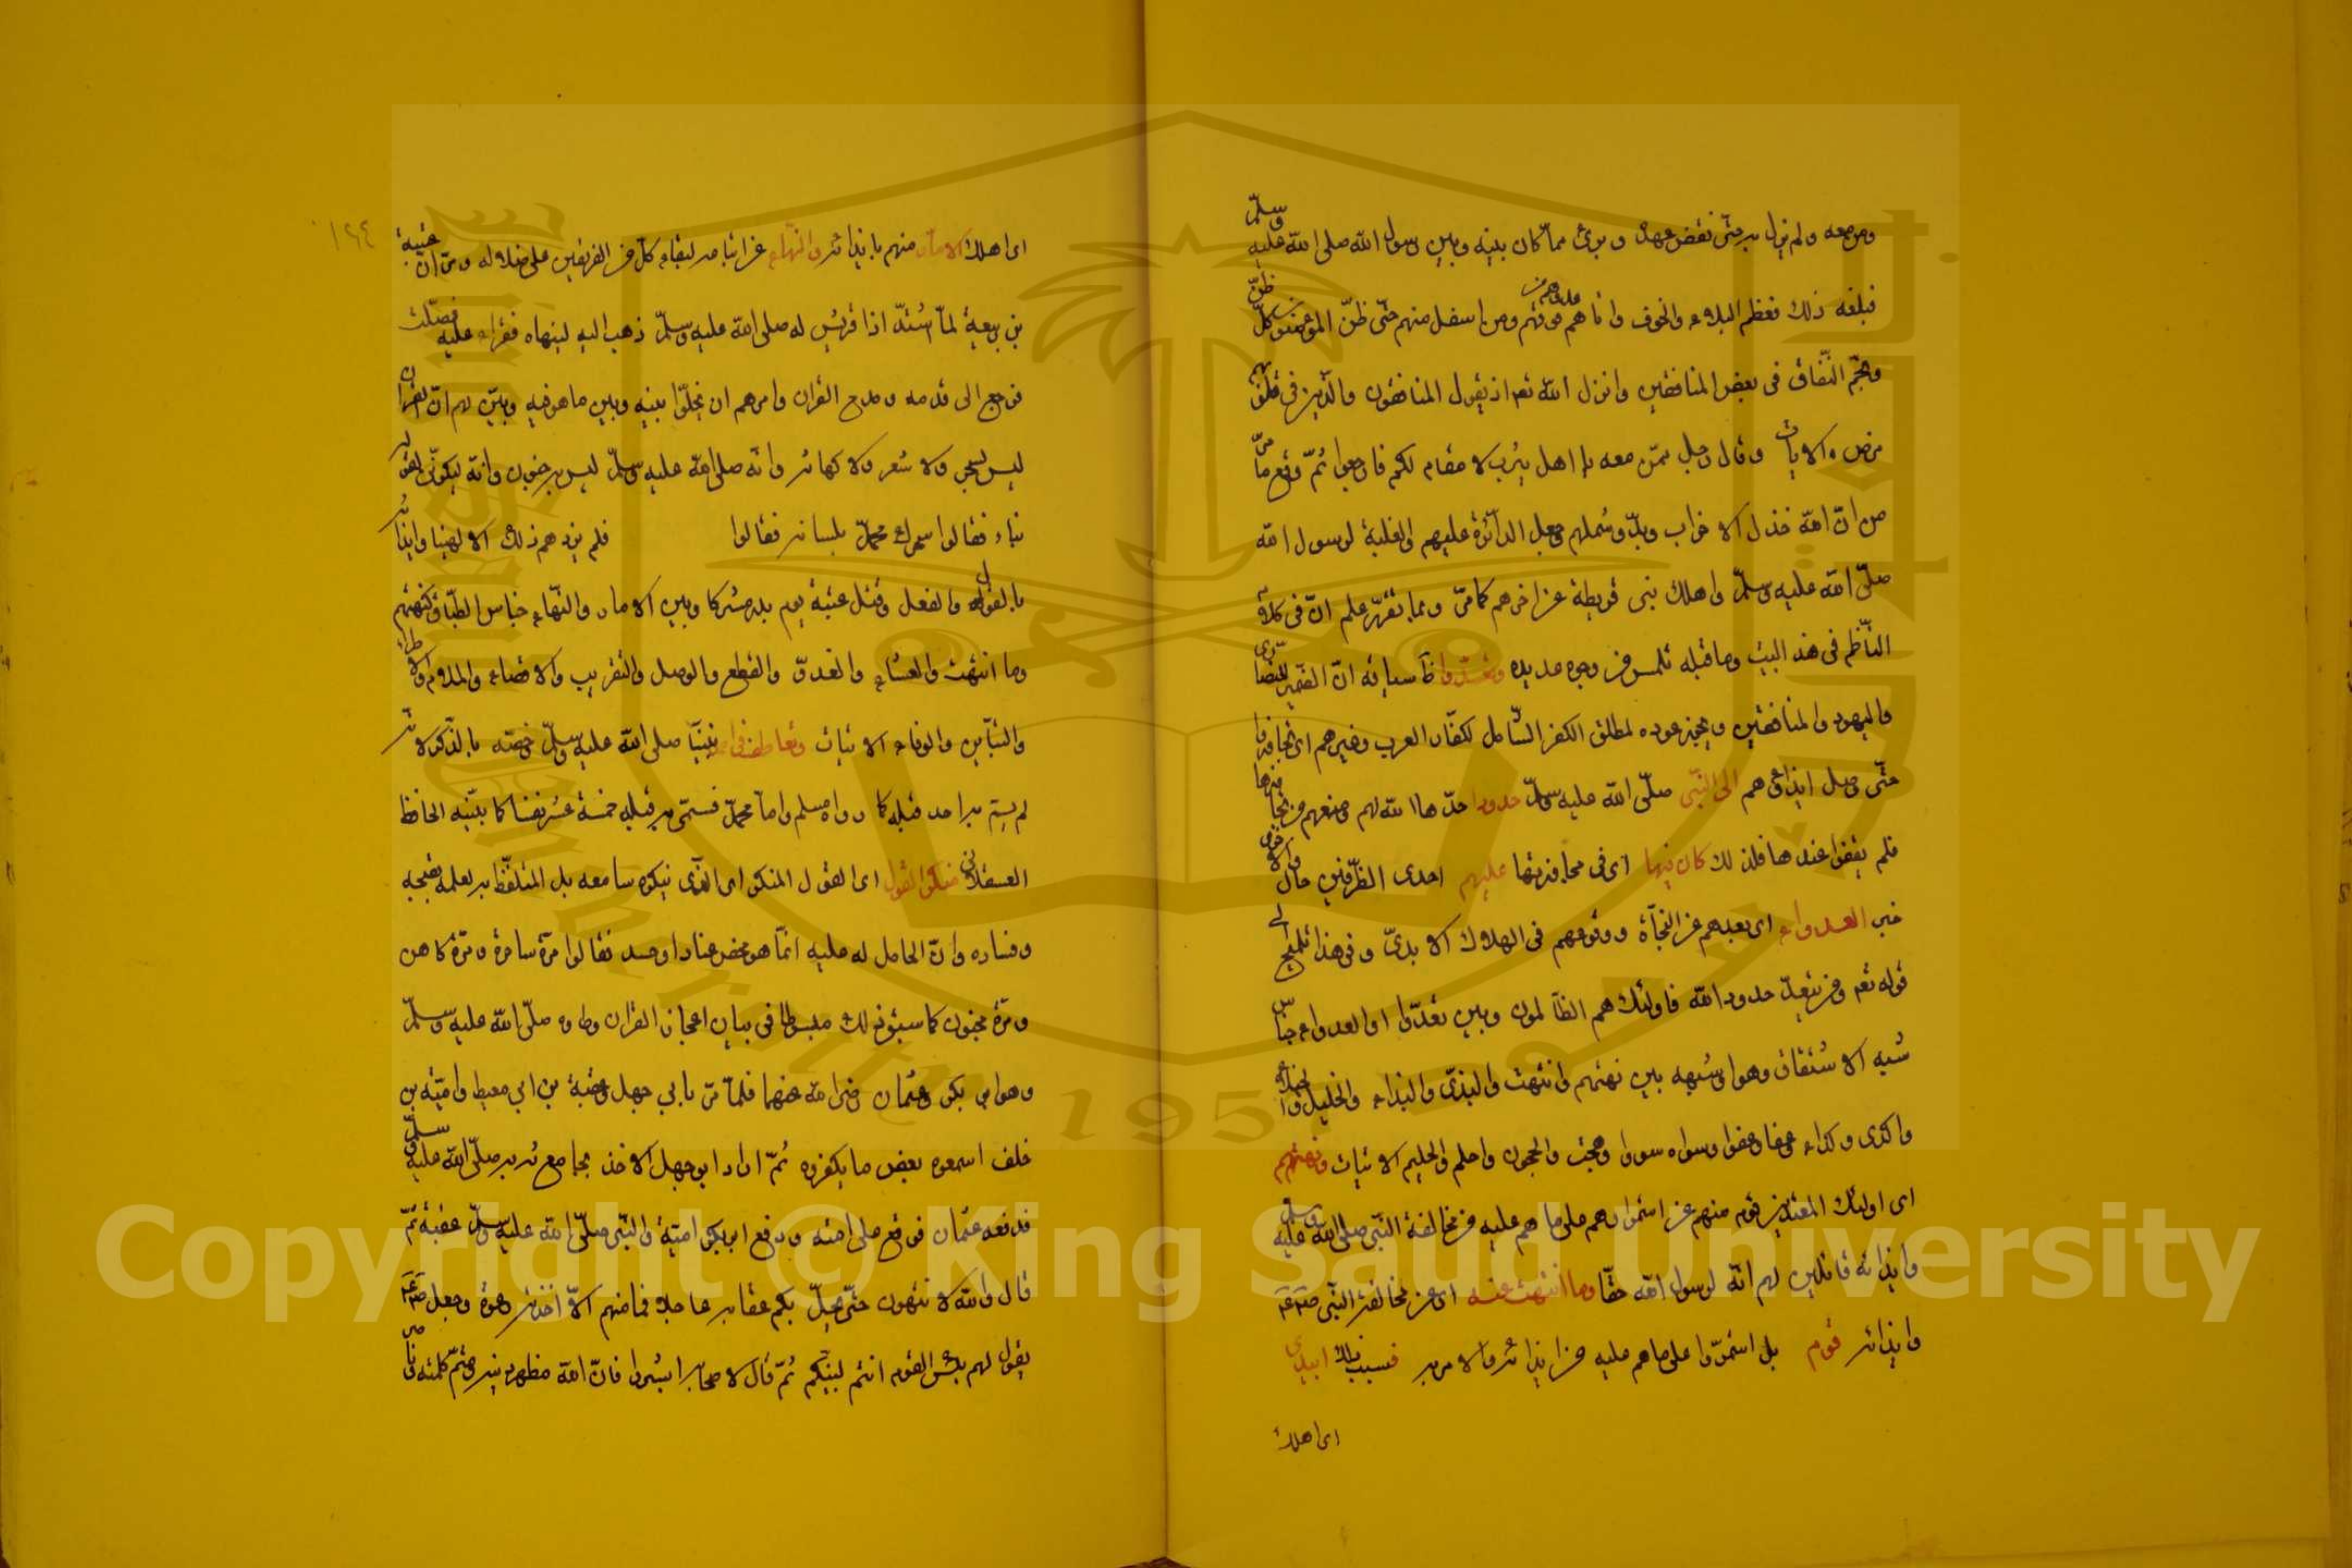 ومن معه ولم يزل به حتى نقض عهده وبرئ مما كان بينه وبين رسول الله صلى الله عليه وسلم
فبلغه ذلك فعظم البلاء والخوف واتاهم عدوهم من فوقهم ومن اسفل منهم حتى ظن المؤمنون كل ظن
ونجم النفاق في بعض المنافقين وانزل الله تع اذ يقول المنافقون والذين في قلوبهم
مرض الايات وقال رجل ممن معه يا اهل يثرب لا مقام لكم فارجعوا ثم وقع ما مر
من ان الله خذل الاحزاب وبدد شملهم وجعل الدائرة عليهم والغلبة لرسول الله
صلى الله عليه وسلم واهلك بني قريظة عن اخرهم كما مر وبما تقرر علم ان في كلام
الناظم في هذا البيت وما قبله تلميح من وجوه عديده وتعدوا ظاهر سياقه ان الضمير للنصارى
واليهود والمنافقين ويجوز عوده لمطلق الكفر الشامل لكفار العرب وغيرهم اي تجاوزوا
حتى وصل ايذاؤهم الى النبي صلى الله عليه وسلم حدودا حدها الله لهم ومنعهم من تجاوزها
فلم يقفوا عندها فلذلك كان فيها اي في مجاوزتها عليهم احدى الظرفين حال والاخرى
خبر العدواء اي بعدهم عن النجاة ووقوعهم في الهلاك الابدي وفي هذا تلميح الى
قوله تع ومن يتعد حدود الله فاولئك هم الظالمون وبين تعدوا والعدواء جناس
شبه الاشتقاق وهو او شبهه بين نهتهم وانتهت والبذي والبذاء والخليل والخلة
واكدى وكداء وعفا وعفوا وسواه سوا وحجت والحجون واحلم والحليم الاتيات ونهتهم
اي اولئك المعتدين قوم منهم عن استمرارهم على ما هم عليه من مخالفة النبي صلى الله عليه وسلم
وايذائه قائلين لهم انه لرسول الله حقا وما انتهت عنه اي عن مخالفة النبي صلعم
وايذائه قوم بل استمروا على ما هم عليه من ايذائه والامر به فسبب ذلك ابيد
اي اهلك
١٦٤
اي اهلك الامار منهم بايذائه والنهاء عن اتباعه لبقاء كل من الفريقين على ضلاله ومر ان عتبة
بن ربيعة لما اشتد اذا قريش له صلى الله عليه وسلم ذهب اليه لينهاه فقرا عليه فصلت
فرجع الى قومه ومدح القران وامرهم ان يخلوا بينه وبين ما هو فيه وبين لهم ان القران
ليس بسحر ولا شعر ولا كهانة وانه صلى الله عليه وسلم ليس به جنون وانه ليكونن لقوله
نباء فقالوا سحرك محمد بلسانه فقالوا فلم يزدهم ذلك الا لهبا وايذائه
بالقول والفعل وقتل عتبة يوم بدر مشركا وبين الامار والنهاء جناس الطباق كنهتهم
وما انتهت والعشاء والغدو والقطع والوصل والتقريب والاقصاء والملام والاطراء
والتباين والوفاء الاتيات وتعاطوا في احمد نبينا صلى الله عليه وسلم خصه بالذكر لانه
لم يسم به احد قبله كما رواه مسلم واما محمد فسمى به قبله خمسة عشر نفسا كما بينه الحافظ
العسقلاني منكر القول اي القول المنكر اي الذي ينكره سامعه بل المتلفظ به لعلمه بقبحه
وفساده وان الحامل له عليه انما هو محض عنادا وحسد فقالوا مرة ساحرة ومرة كاهن
ومرة مجنون كما سبق ذلك مبسوطا في بيان اعجاز القران وطاف صلى الله عليه وسلم
وهو ابي بكر وعثمان رضي الله عنهما فلما مر بابي جهل وعقبة بن ابي معيط وامية بن
خلف اسمعوه بعض ما يكفره ثم اراد ابو جهل الاخذ بمجامع ثوبه صلى الله عليه وسلم
فدفعه عثمان فوقع على استه ودفع ابو بكر امية والنبي صلى الله عليه وسلم عقبة ثم
قال والله لا تنتهون حتى يحل بكم عقابه عاجلا فما منهم الا اخذته رعدة وجعل صلعم
يقول لهم بئس القوم انتم لنبيكم ثم قال لاصحابه ابشروا فان الله مظهر دينه ومتم كلمته وناصر